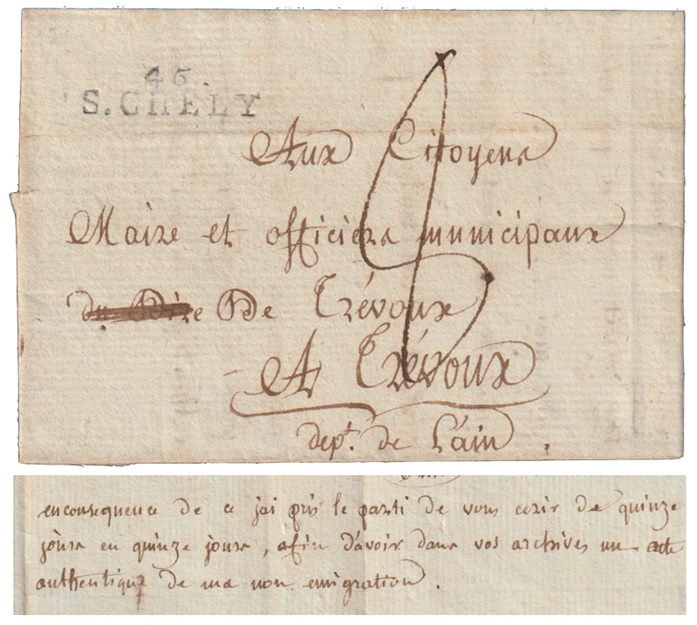 46.
S. CHELY
Aux Citoyens
Maire et officiers municipaux
De Trévoux
A Trévoux
dept. de L'ain.
en consequence de ce jai pris le parti de vous ecrir de quinze
jours en quinze jours, afin d'avoir dans vos archives un acte
authentique de ma non emigration.